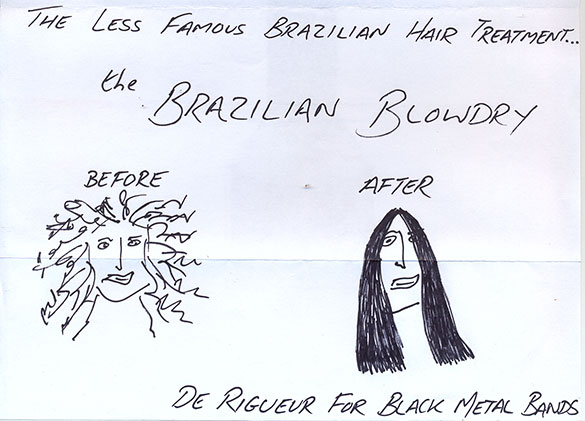 THE LESS FAMOUS BRAZILIAN HAIR TREATMENT...
the BRAZILIAN BLOWDRY
BEFORE
AFTER
DE RIGUEUR FOR BLACK METAL BANDS